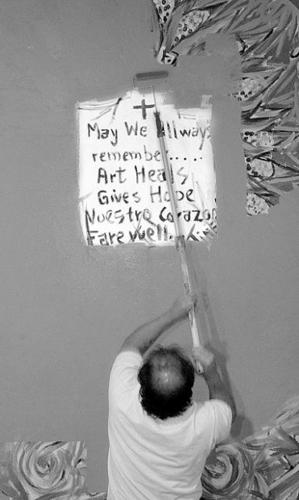 May We Allways
remember.....
Art Heals
Gives Hope
Nuestro Corazon
Farewell...